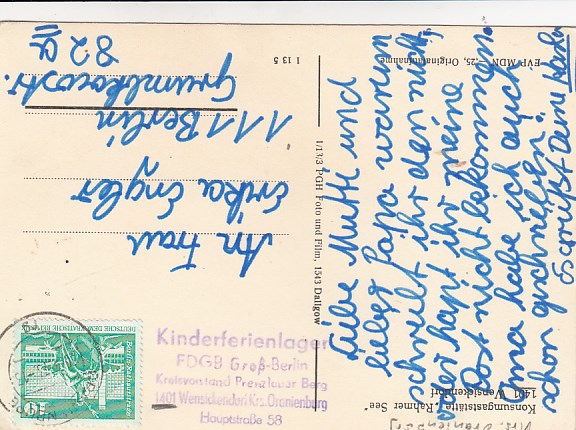 Liebe Mutti und
liebst Papa warum
schreibt ihr den nicht,
oder hapt ihr meine
Post nicht bekommen.
Oma habe ich auch
schon geschrieben.
An Frau
Erika Engler
111 Berlin
Grumbkowstr.
82a
Kinderferienlager
FDGB Groß-Berlin
Kreisvorstand Prenzlauer Berg
1401 Wensickendorf Krs. Oranienburg
Hauptstraße 58
Konsumgaststätte "Rahmer See"
1401 Wensickendorf
Krs. Oranienburg
1/13/3 PGH Foto und Film, 1543 Dallgow
EVP MDN —,25, Originalaufnahme
1 13 5
DEUTSCHE DEMOKRATISCHE REPUBLIK
Berlin, Rathausstraße
10